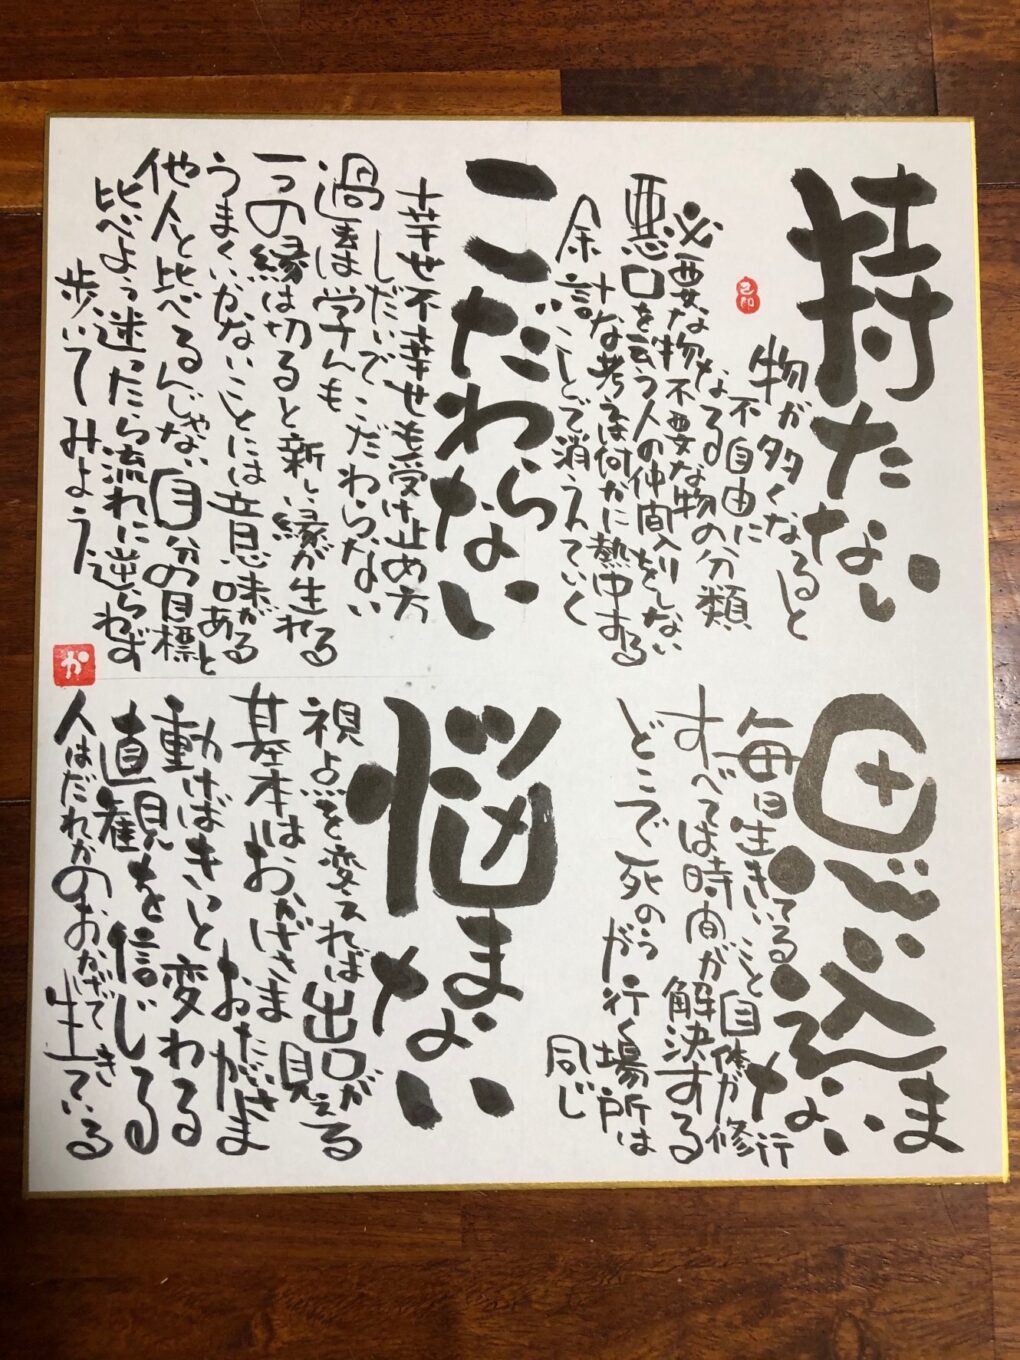 持たない
物が多くなると
不自由に
なる
必要な物不要な物の分類
悪口を言う人の仲間入りをしない
余計な考えは何かに熱中する
ことで消えていく
思い込まない
毎日生きていること自体が修行
すべては時間が解決する
どこで死のうが行く場所は
同じ
こだわらない
幸せ不幸せも受け止め方
しだいでこだわらない
過去は学んも
一つの縁は切ると新しい縁が生れる
うまくいかないことには意味がある
他人と比べるんじゃない自分の目標と
比べよう迷ったら流れに逆らわず
歩いてみよう
か
悩まない
視点を変えれば出口が見える
基本はおかげさま
おたがいさま
動けばきっと変わる
直観を信じる
人はだれかのおかげで生きている